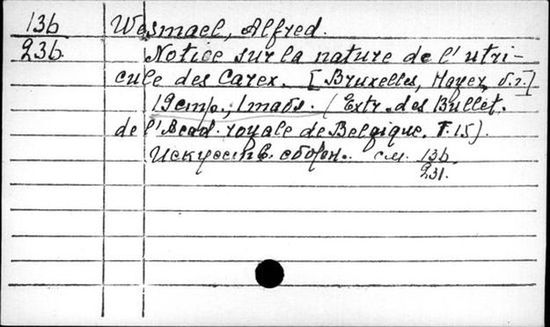 13b Wesmael, Alfred.
23b. Notice sur la nature de l'utri-
cule des Carex. [Bruxelles, Hayez, s.a.]
19 стр., 1 табл. (Extr. des Bullet.
de l'Acad. royale de Belgique. T. 15).
Искусств. сборн. см. 13b.
231.